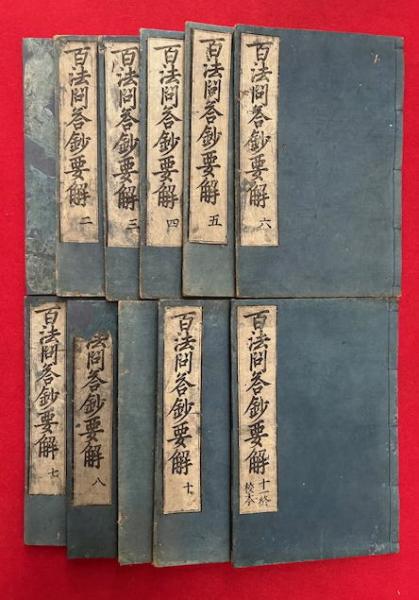 百法問答鈔要解 二
百法問答鈔要解 三
百法問答鈔要解 四
百法問答鈔要解 五
百法問答鈔要解 六
百法問答鈔要解 七
法問答鈔要解 八
百法問答鈔要解 十
百法問答鈔要解 十一終
校本